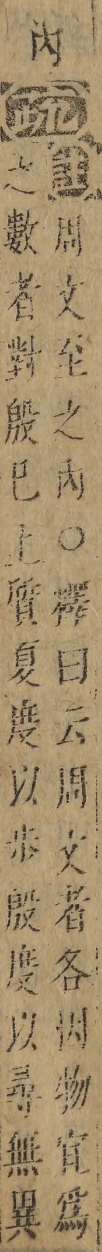 內
疏
注周文至之內○釋曰云周文者各因物宜爲
之數者對殷已上質夏度以步殷度以尋無異